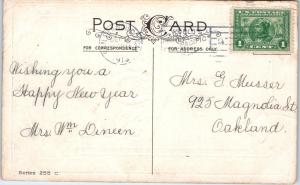 POST CARD
FOR CORRESPONDENCE
FOR ADDRESS ONLY
1 CENT 1
Wishing you a
Happy New Year
Mrs. Wm Dineen
Mrs. G Musser
925 Magnolia St
Oakland.
Series 255 C